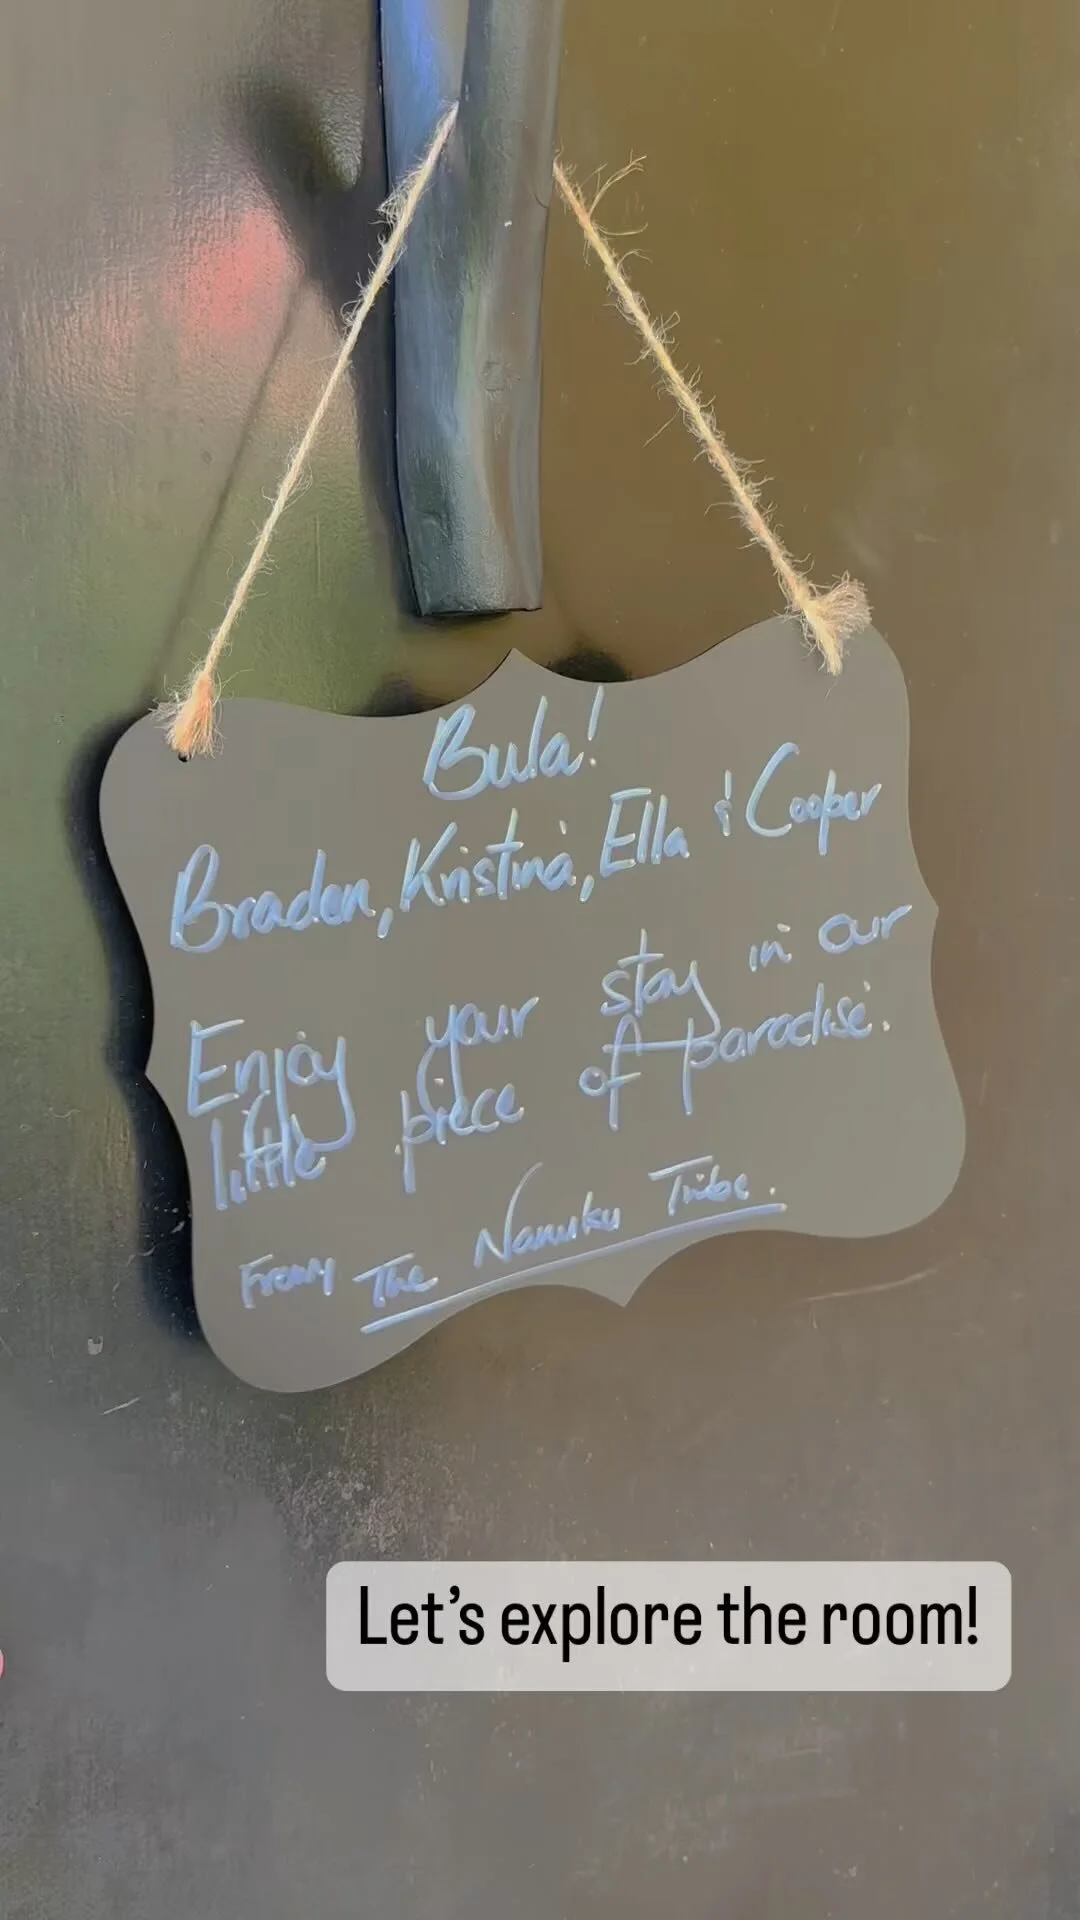 Bula!
Braden, Kristina, Ella & Cooper
Enjoy your stay in our
little piece of paradise.
From The Nanuku Tribe.
Let's explore the room!